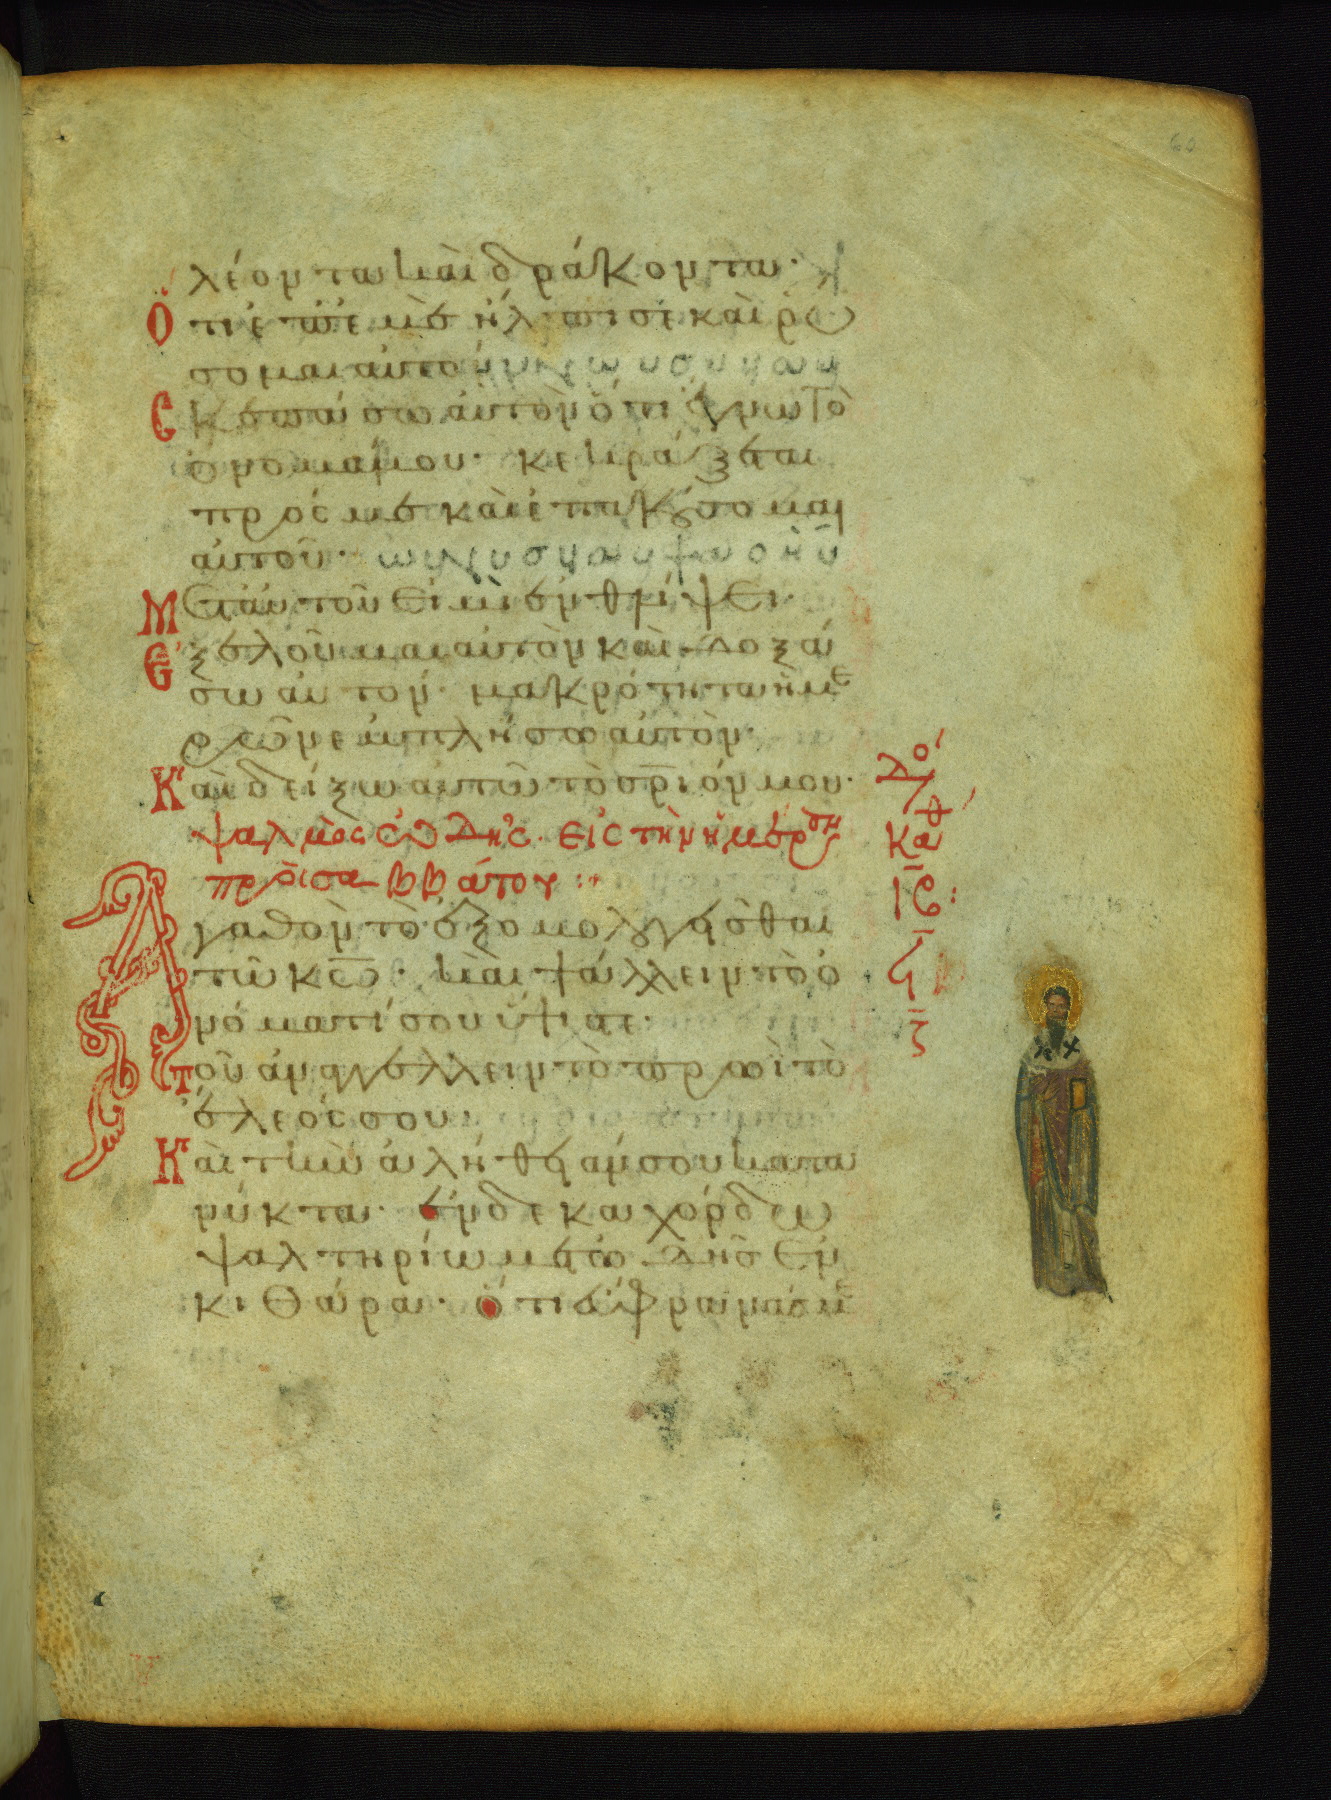 60
λέοντα καὶ δράκοντα·
Ὅτι ἐπ' ἐμὲ ἤλπισε καὶ ρύ
σομαι αὐτόν
Σκεπάσω αὐτὸν ὅτι ἔγνω τὸ
ὄνομά μου· κεκράξεται
πρός με καὶ ἐπακούσομαι
αὐτοῦ·
Μετ' αὐτοῦ εἰμὶ ἐν θλίψει·
Ἐξελοῦμαι αὐτὸν καὶ δοξά
σω αὐτόν· μακρότητα ἡμε
ρῶν ἐμπλήσω αὐτόν·
Καὶ δείξω αὐτῶ τὸ σρ̅ιόν μου·
ψαλμὸς ὠδῆς· εἰς τὴν ἡμέραν
προσαββάτου :·
Ἀγαθὸν τὸ ἐξομολογεῖσθαι
τῶ κω̅· καὶ ψάλλειν τὸ ὀ
νόματί σου ὕψιστε·
τοῦ ἀναγγέλλειν τὸ πρωῒ τὸ
ἔλεός σου
Καὶ τὴν ἀλήθειάν σου κατὰ
νύκτα· ἐν δεκαχόρδω
ψαλτηρίω μετ' ὠδῆς ἐν
κιθάρα· ὅτι εὔφρανάς με
δο
καθ
ιε̅ :
ζ̅